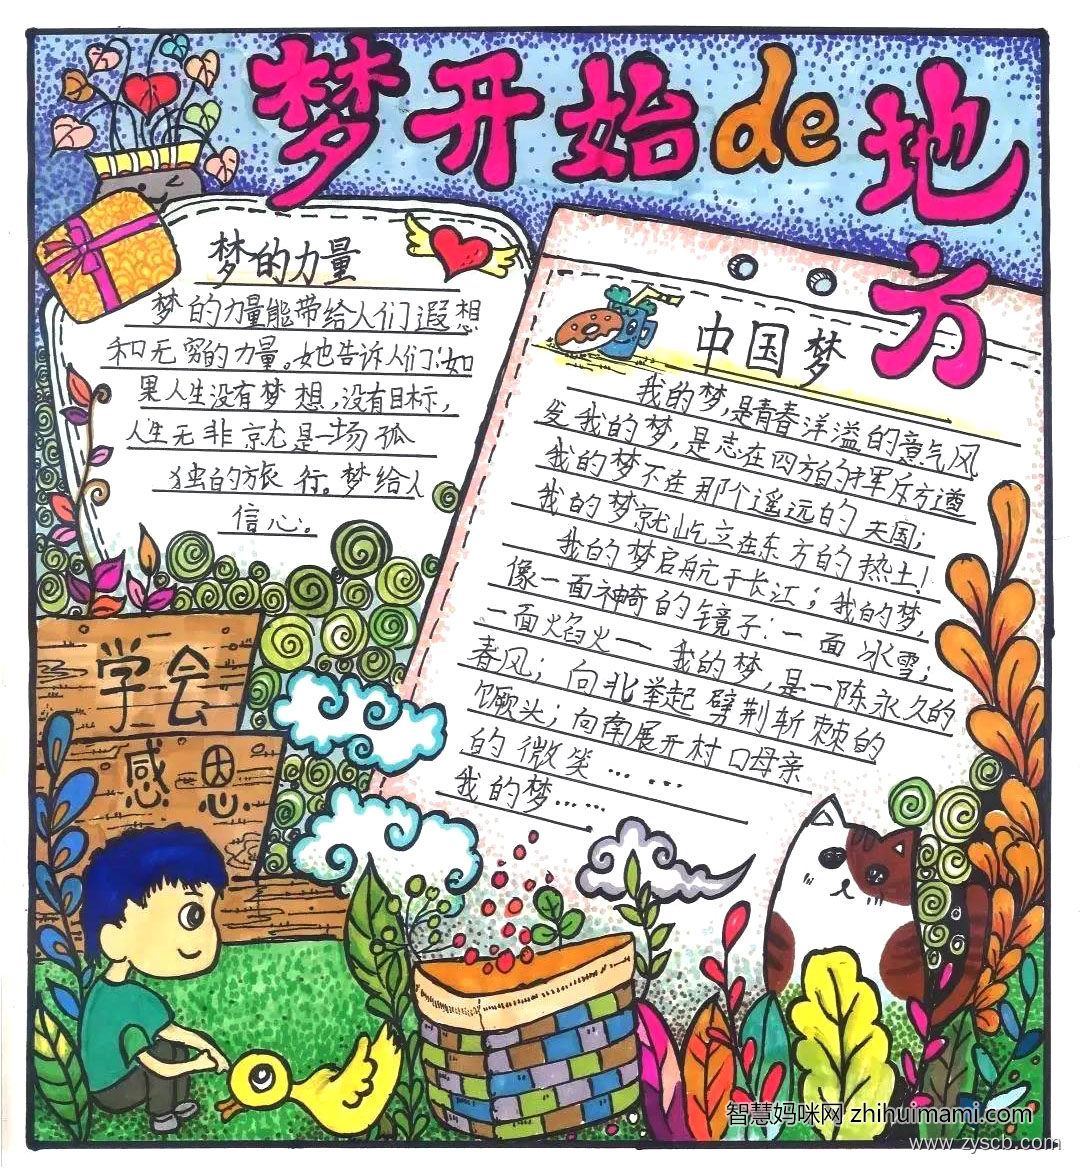 梦开始de地方
梦的力量
梦的力量能带给人们遐想
和无穷的力量。她也告诉人们:如
果人生没有梦想,没有目标,
人生无非就是一场孤
独的旅行。梦给人
信心。
中国梦
我的梦,是青春洋溢的意气风
发我的梦,是志在四方的挥斥方遒
我的梦不在那个遥远的英国;
我的梦就屹立在东方的热土!
我的梦启航于长江;我的梦,
像一面神奇的镜子:一面冰雪;
一面焰火——我的梦,是一陈永久的
春风;向北举起劈荆斩棘的
馒头;向南展开村口母亲
的微笑……
我的梦……
学会
感恩
智慧妈咪网 zhihuimami.com
www.zyscb.com